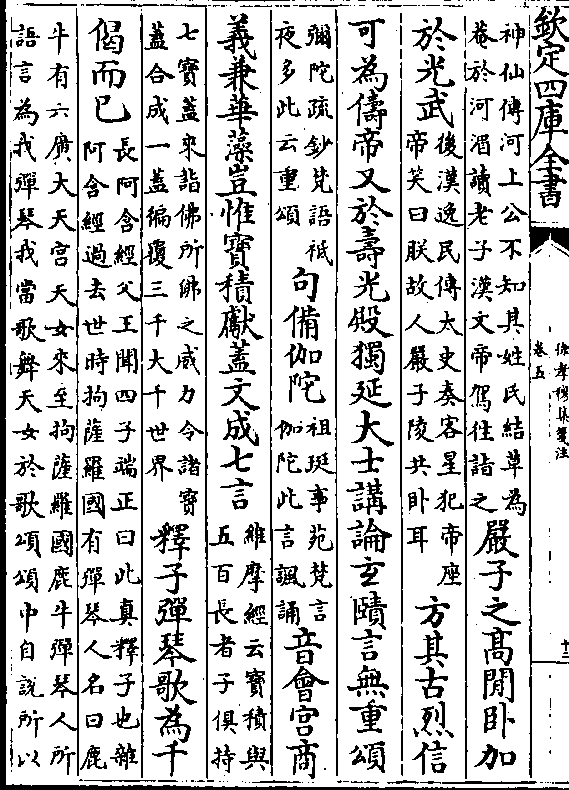 欽定四庫全書
徐孝穆集箋注
卷五
十三
神仙傳河上公不知其姓氏結草為
菴於河湄讀老子漢文帝駕往詣之
嚴子之高閒卧加
於光武
後漢逸民傳太史奏客星犯帝座
帝笑曰朕故人嚴子陵共卧耳
方其古烈信
可為儔帝又於壽光殿獨延大士講論玄賾言無重頌
彌陀疏鈔梵語祇
夜多此云重頌
句備伽陀
祖珽事苑梵言
伽陀此言諷誦
音會宫商
義兼華藻豈惟寶積獻蓋文成七言
維摩經云寶積與
五百長者子俱持
七寶蓋來詣佛所佛之威力令諸寶
蓋合成一蓋徧覆三千大千世界
釋子彈琴歌為千
偈而已
長阿含經父王聞四子端正曰此真釋子也雜
阿含經過去世時拘薩羅國有彈琴人名曰鹿
牛有六廣大天宫天女來至拘薩羅國鹿牛彈琴人所
語言為我彈琴我當歌舞天女於歌頌頌中自説所以